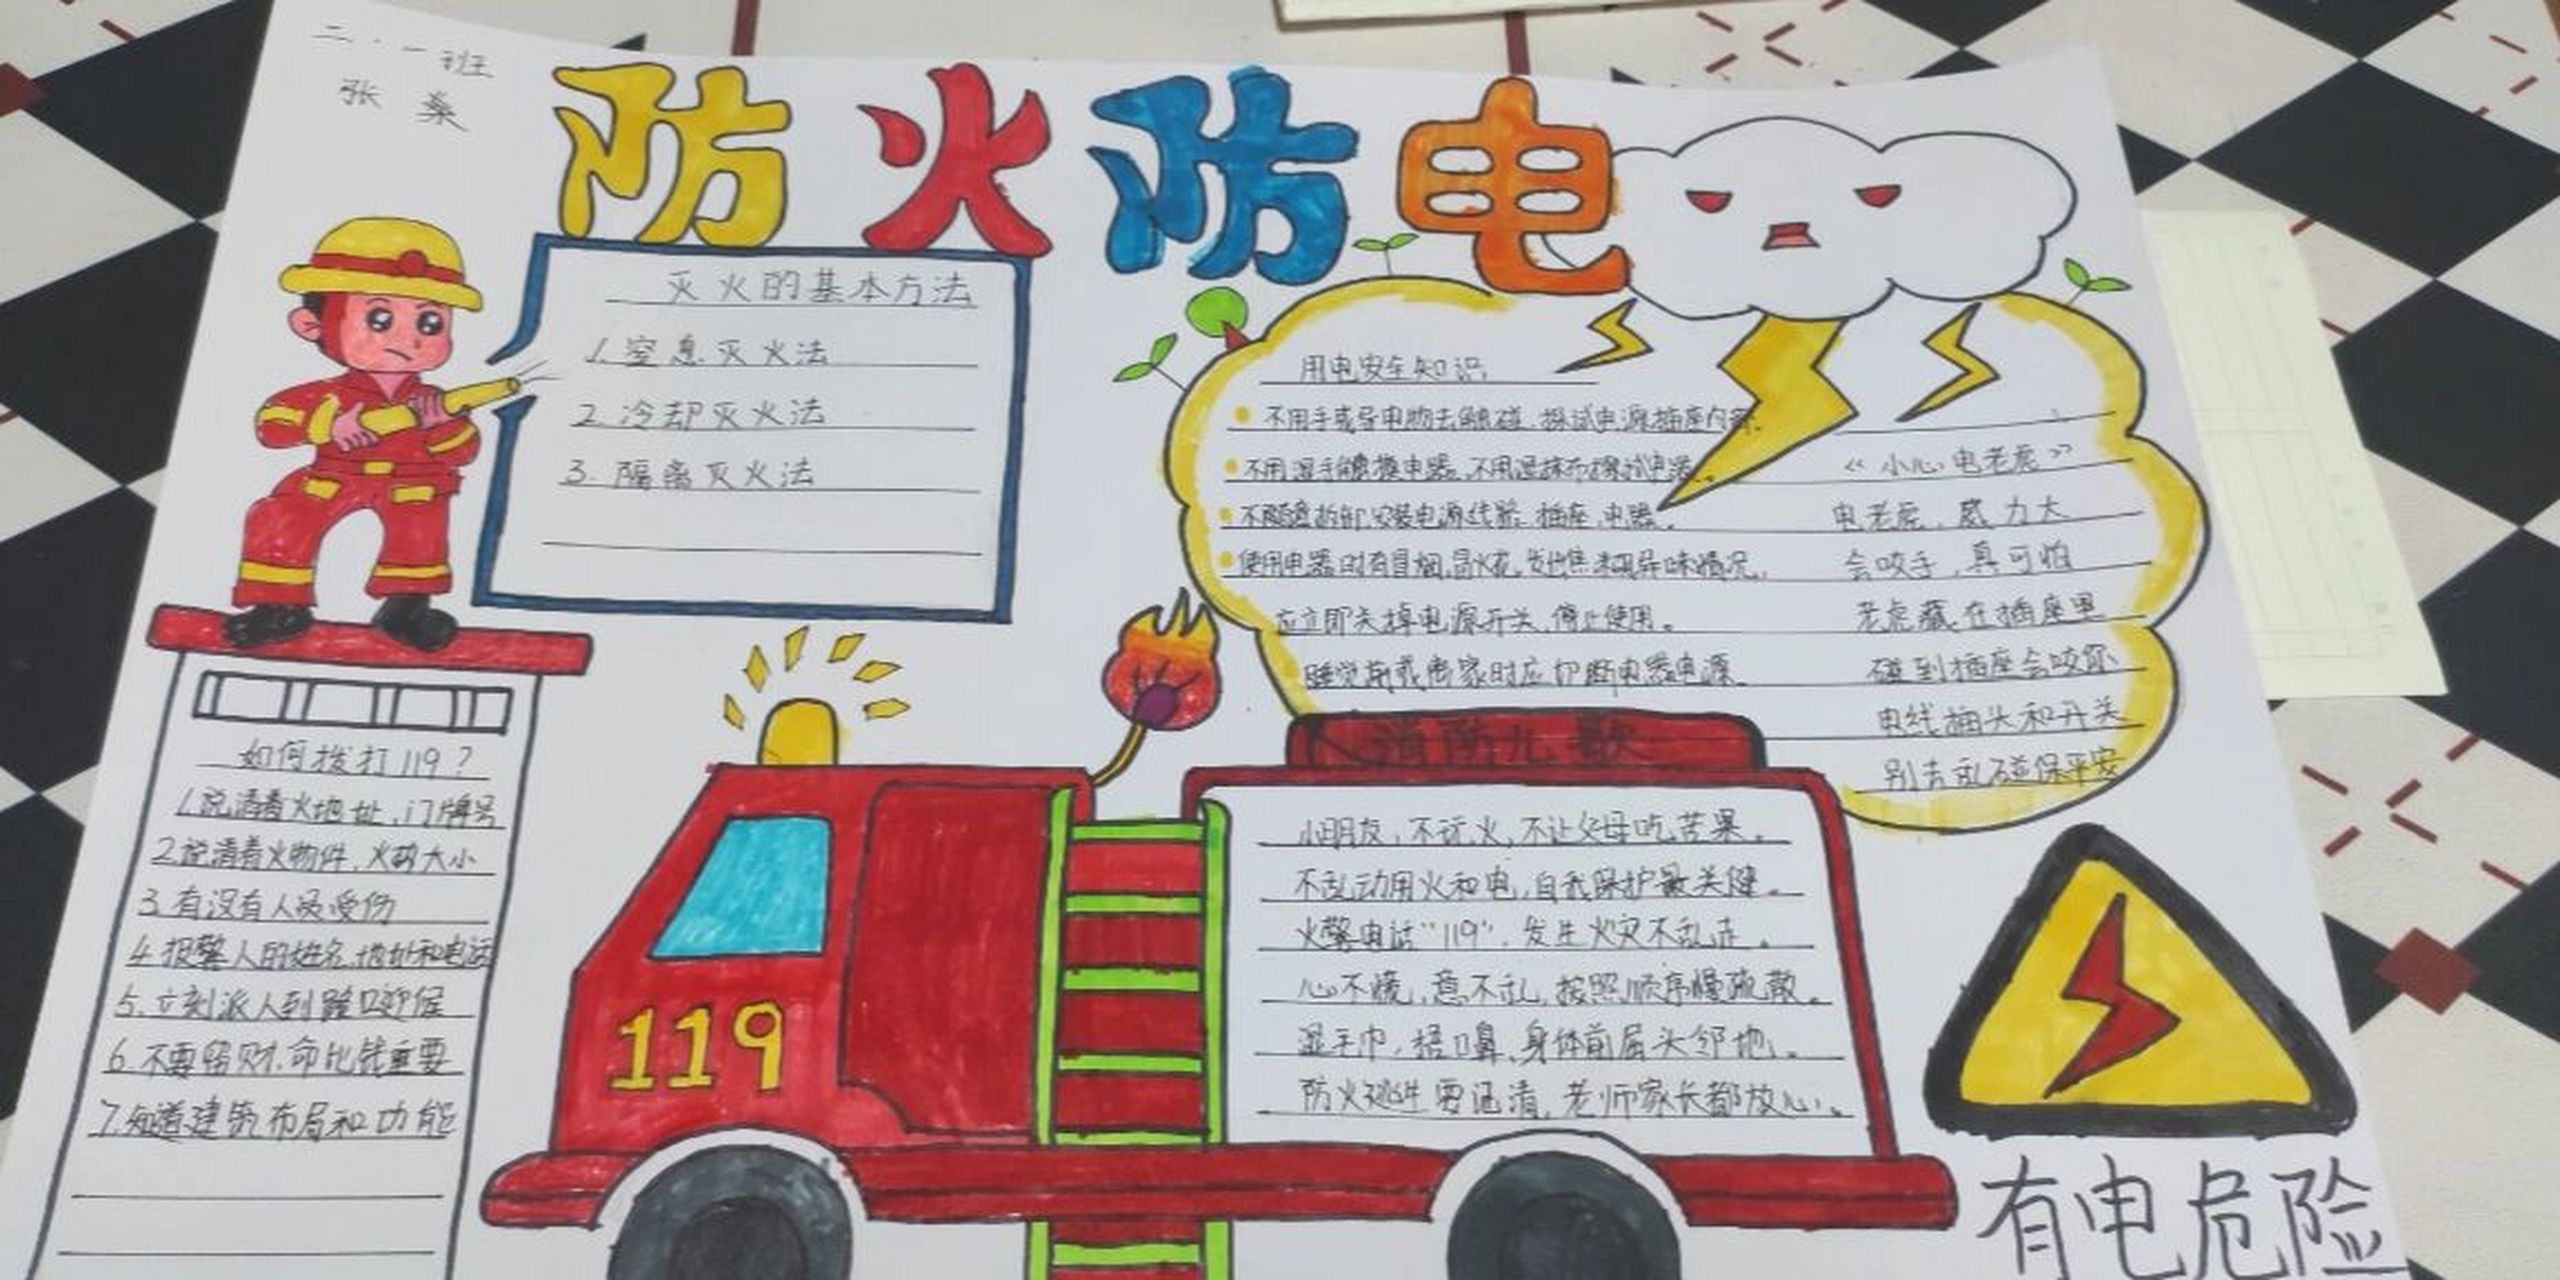 二·一班
张桑
防火防电
灭火的基本方法
1.窒息灭火法
2.冷却灭火法
3.隔离灭火法
如何拨打119?
1.说清着火地址,门牌号
2.说清着火物件,火势大小
3.有没有人员受伤
4.报警人的姓名.地址和电话
5.立刻派人到路口迎候
6.不要留财.命比钱重要
7.知道建筑布局和功能
用电安全知识
不用手或导电物去触碰.探试电源插座内部.
不用湿手触摸电器,不用湿抹布擦拭电器。
不随意拆卸.安装电源线路.插座.电器。
使用电器时有冒烟,冒火花,发出焦糊异味情况,
应立即关掉电源开关,停止使用。
睡觉前或离家时应切断电器电源。
《小心电老虎》
电老虎,威力大
会咬手,真可怕
老虎藏在插座里
碰到插座会咬你
电线插头和开关
别去乱碰保平安
消防儿歌
119
小朋友,不玩火,不让父母吃苦果。
不乱动用火和电,自我保护最关健。
火警电话"119",发生火灾不乱走。
心不慌,意不乱,按照顺序慢疏散。
湿手巾,捂口鼻,身体前屈头邻地。
防火逃生要记清,老师家长都放心。
有电危险